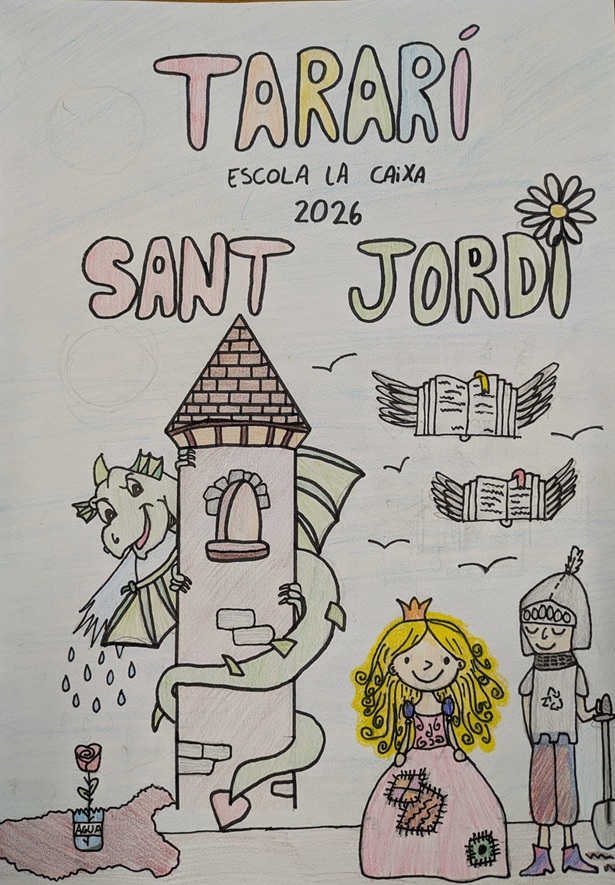 TARARÍ
ESCOLA LA CAIXA
2026
SANT JORDI
AGUA